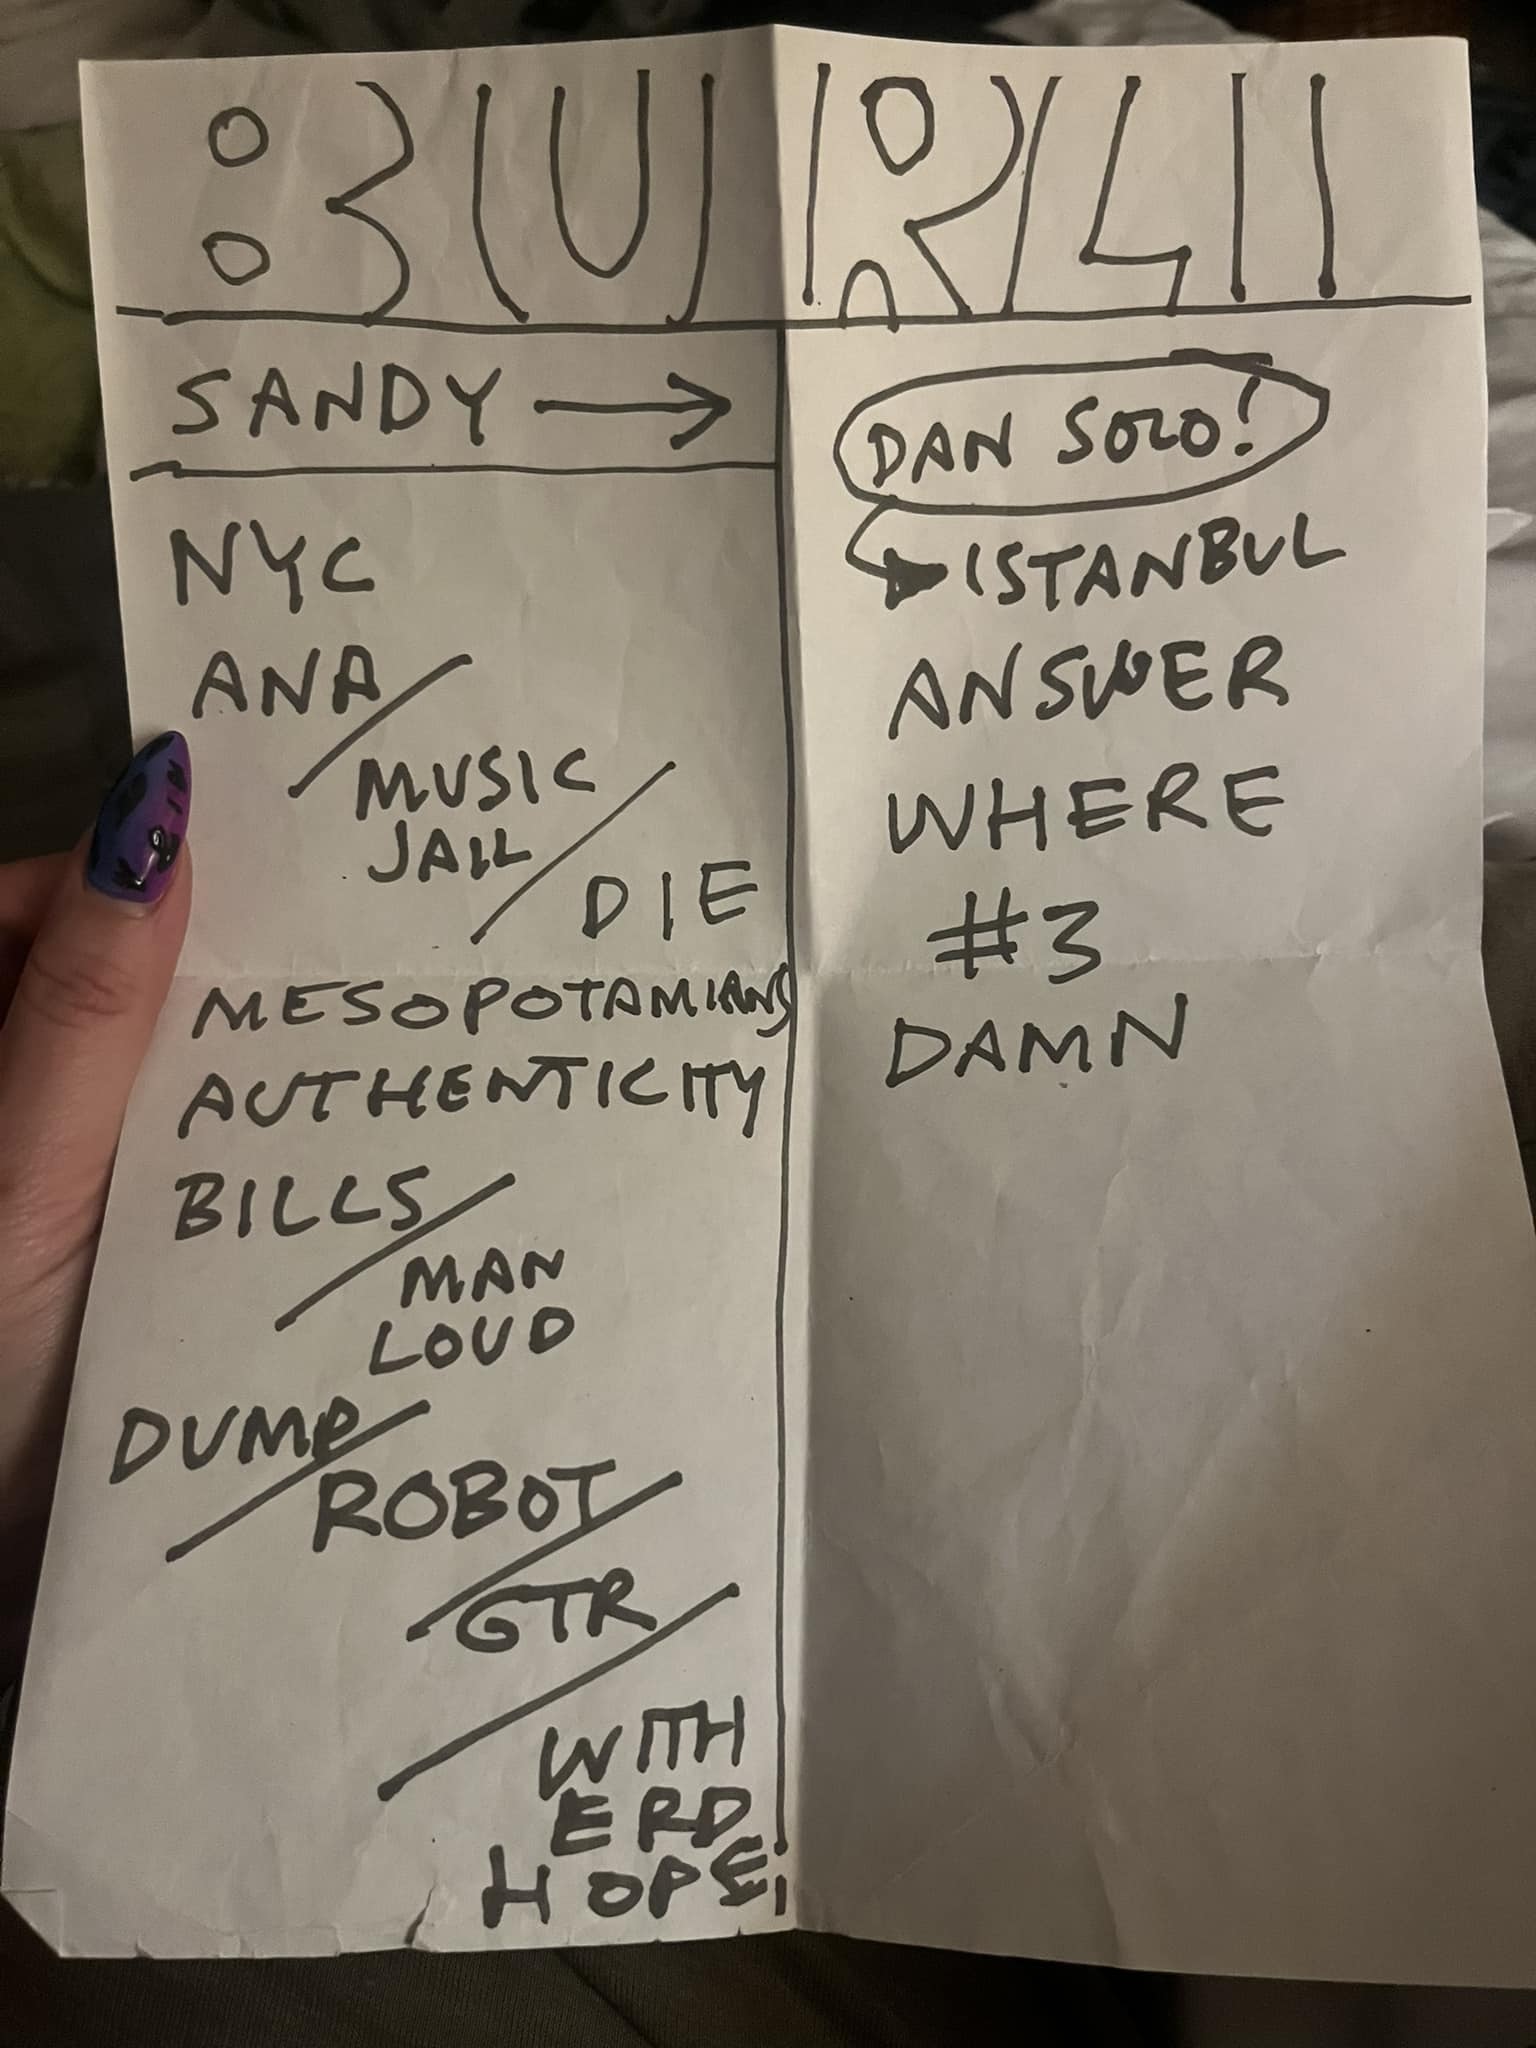 BURL
SANDY →
NYC
ANA /
MUSIC
JAIL /
DIE
MESOPOTAMIANS
AUTHENTICITY
BILLS /
MAN
LOUD
DUMP /
ROBOT /
GTR /
WITH
ERD
HOPE
DAN SOLO!
ISTANBUL
ANSWER
WHERE
#3
DAMN